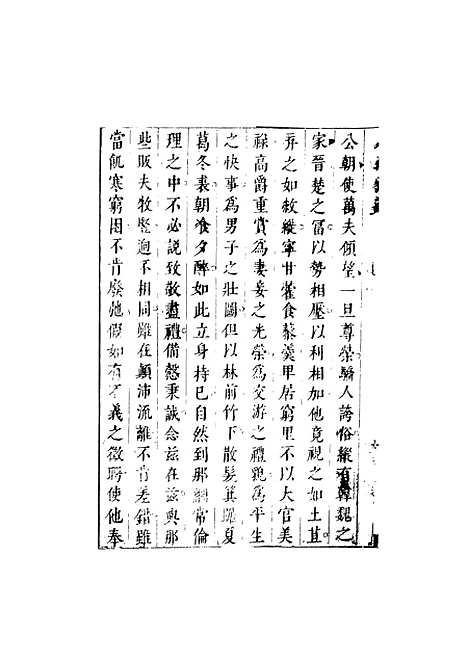 公朝使萬夫傾望一旦尊榮驕人誇俗縱有韓魏之
家晉楚之冨以勢相壓以利相加他竟視之如土苴
弃之如敝縰寧甘藿食藜羮甲居窮里不以大官美
祿高爵重賞為妻妾之光榮為交游之禮貌為平生
之快事為男子之壯圖但以林前竹下散髮箕踞夏
葛冬裘朝飧夕醉如此立身持已自然到那綱常倫
理之中不必説致敬盡禮備慤秉誠念兹在兹與那
些販夫牧豎逈不相同雖在顛沛流離不肯差錯雖
當飢寒窮困不肯廢弛假如有不義之徴聘使他奉